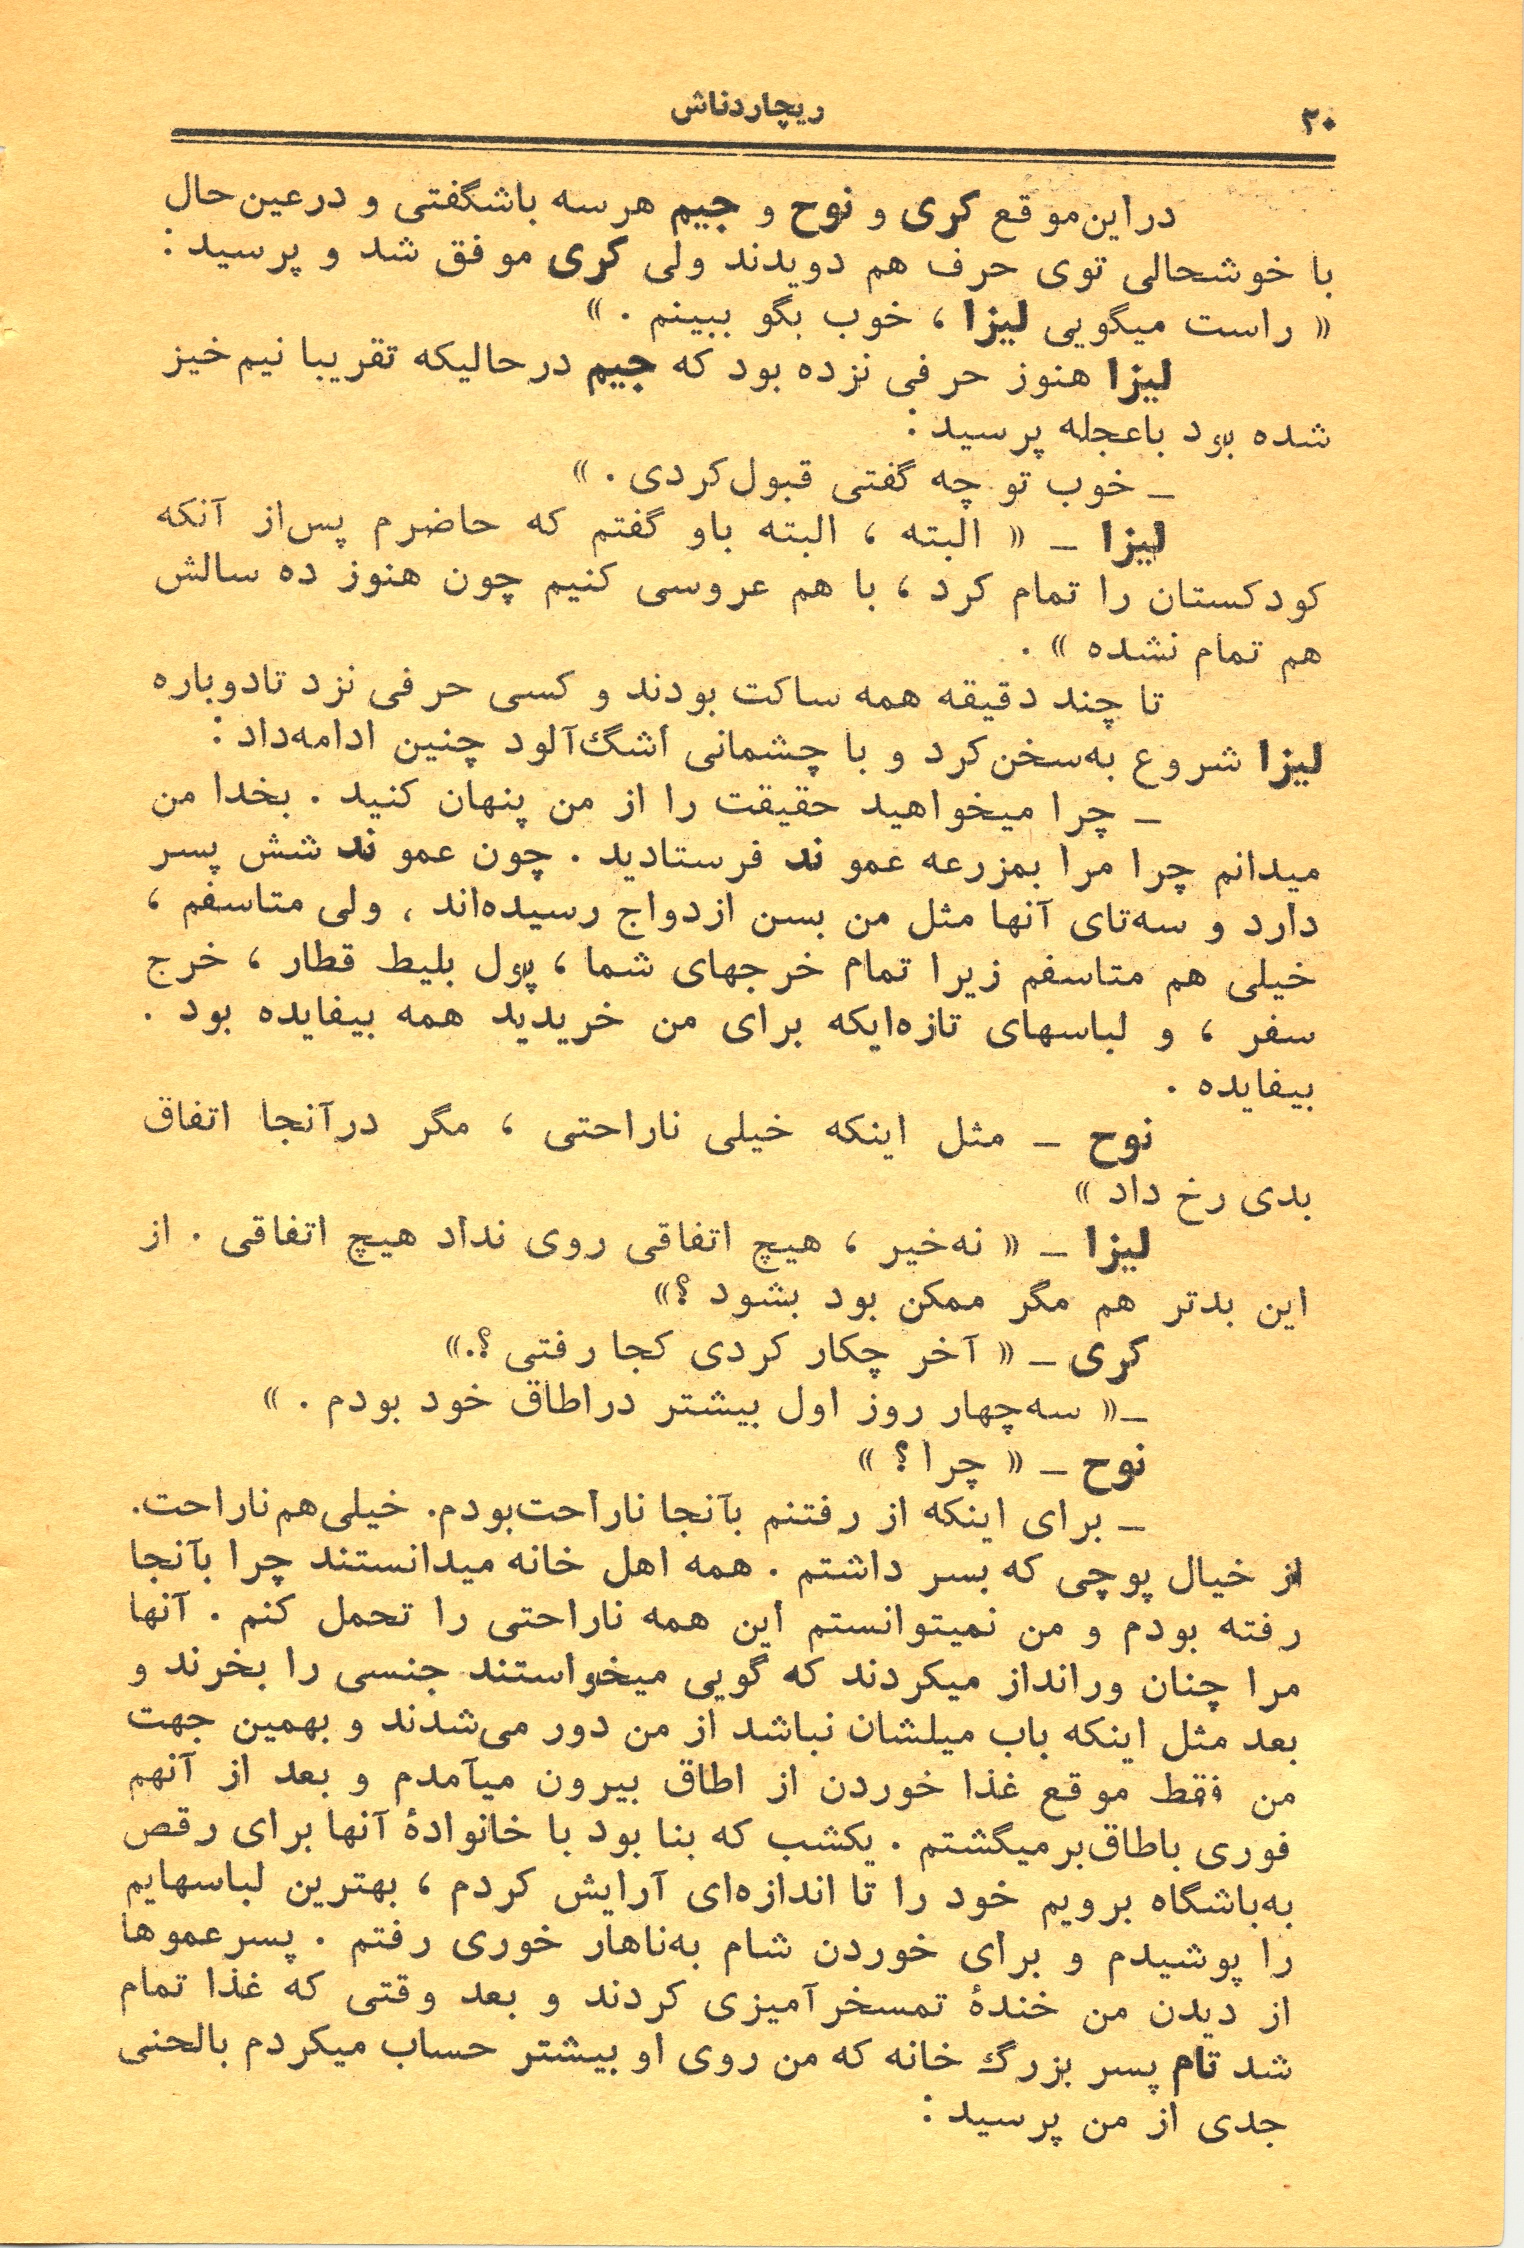 ۳۰
ریچاردناش
دراین‌موقع کری و نوح و جیم هرسه باشگفتی و درعین‌حال
با خوشحالی توی حرف هم دویدند ولی کری موفق شد و پرسید :
« راست میگویی لیزا ، خوب بگو ببینم . »
لیزا هنوز حرفی نزده بود که جیم درحالیکه تقریبا نیم‌خیز
شده بود باعجله پرسید :
ـ خوب تو چه گفتی قبول‌کردی . »
لیزا ـ « البته ، البته باو گفتم که حاضرم پس‌از آنکه
کودکستان را تمام کرد ، با هم عروسی کنیم چون هنوز ده سالش
هم تمام نشده » .
تا چند دقیقه همه ساکت بودند و کسی حرفی نزد تادوباره
لیزا شروع به‌سخن‌کرد و با چشمانی اشگ‌آلود چنین ادامه‌داد :
ـ چرا میخواهید حقیقت را از من پنهان کنید . بخدا من
میدانم چرا مرا بمزرعه عمو ند فرستادید . چون عمو ند شش پسر
دارد و سه‌تای آنها مثل من بسن ازدواج رسیده‌اند ، ولی متاسفم ،
خیلی هم متاسفم زیرا تمام خرجهای شما ، پول بلیط قطار ، خرج
سفر ، و لباسهای تازه‌ایکه برای من خریدید همه بیفایده بود .
بیفایده .
نوح ـ مثل اینکه خیلی ناراحتی ، مگر درآنجا اتفاق
بدی رخ داد »
لیزا ـ « نه‌خیر ، هیچ اتفاقی روی نداد هیچ اتفاقی . از
این بدتر هم مگر ممکن بود بشود ؟»
کری ـ « آخر چکار کردی کجا رفتی ؟.»
ـ« سه‌چهار روز اول بیشتر دراطاق خود بودم . »
نوح ـ « چرا ؟ »
ـ برای اینکه از رفتنم بآنجا ناراحت‌بودم. خیلی‌هم‌ناراحت.
از خیال پوچی که بسر داشتم . همه اهل خانه میدانستند چرا بآنجا
رفته بودم و من نمیتوانستم این همه ناراحتی را تحمل کنم . آنها
مرا چنان ورانداز میکردند که گویی میخواستند جنسی را بخرند و
بعد مثل اینکه باب میلشان نباشد از من دور می‌شدند و بهمین جهت
من فقط موقع غذا خوردن از اطاق بیرون میآمدم و بعد از آنهم
فوری باطاق‌برمیگشتم . یکشب که بنا بود با خانوادهٔ آنها برای رقص
به‌باشگاه برویم خود را تا اندازه‌ای آرایش کردم ، بهترین لباسهایم
را پوشیدم و برای خوردن شام به‌ناهار خوری رفتم . پسرعموها
از دیدن من خندهٔ تمسخرآمیزی کردند و بعد وقتی که غذا تمام
شد تام پسر بزرگ خانه که من روی او بیشتر حساب میکردم بالحنی
جدی از من پرسید :